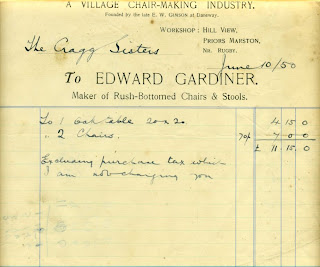 A VILLAGE CHAIR-MAKING INDUSTRY.
Founded by the late E. W. GIMSON at Daneway.
WORKSHOP: HILL VIEW,
PRIORS MARSTON,
NR. RUGBY.
The Cragg Sisters
June 10/50
To EDWARD GARDINER.
Maker of Rush-Bottomed Chairs & Stools.
To 1 Oak table 20 x 20 4 15 0
" 2 Chairs. 70/- 7 0 0
£ 11 15 0
Excluding purchase tax which
I am not charging you